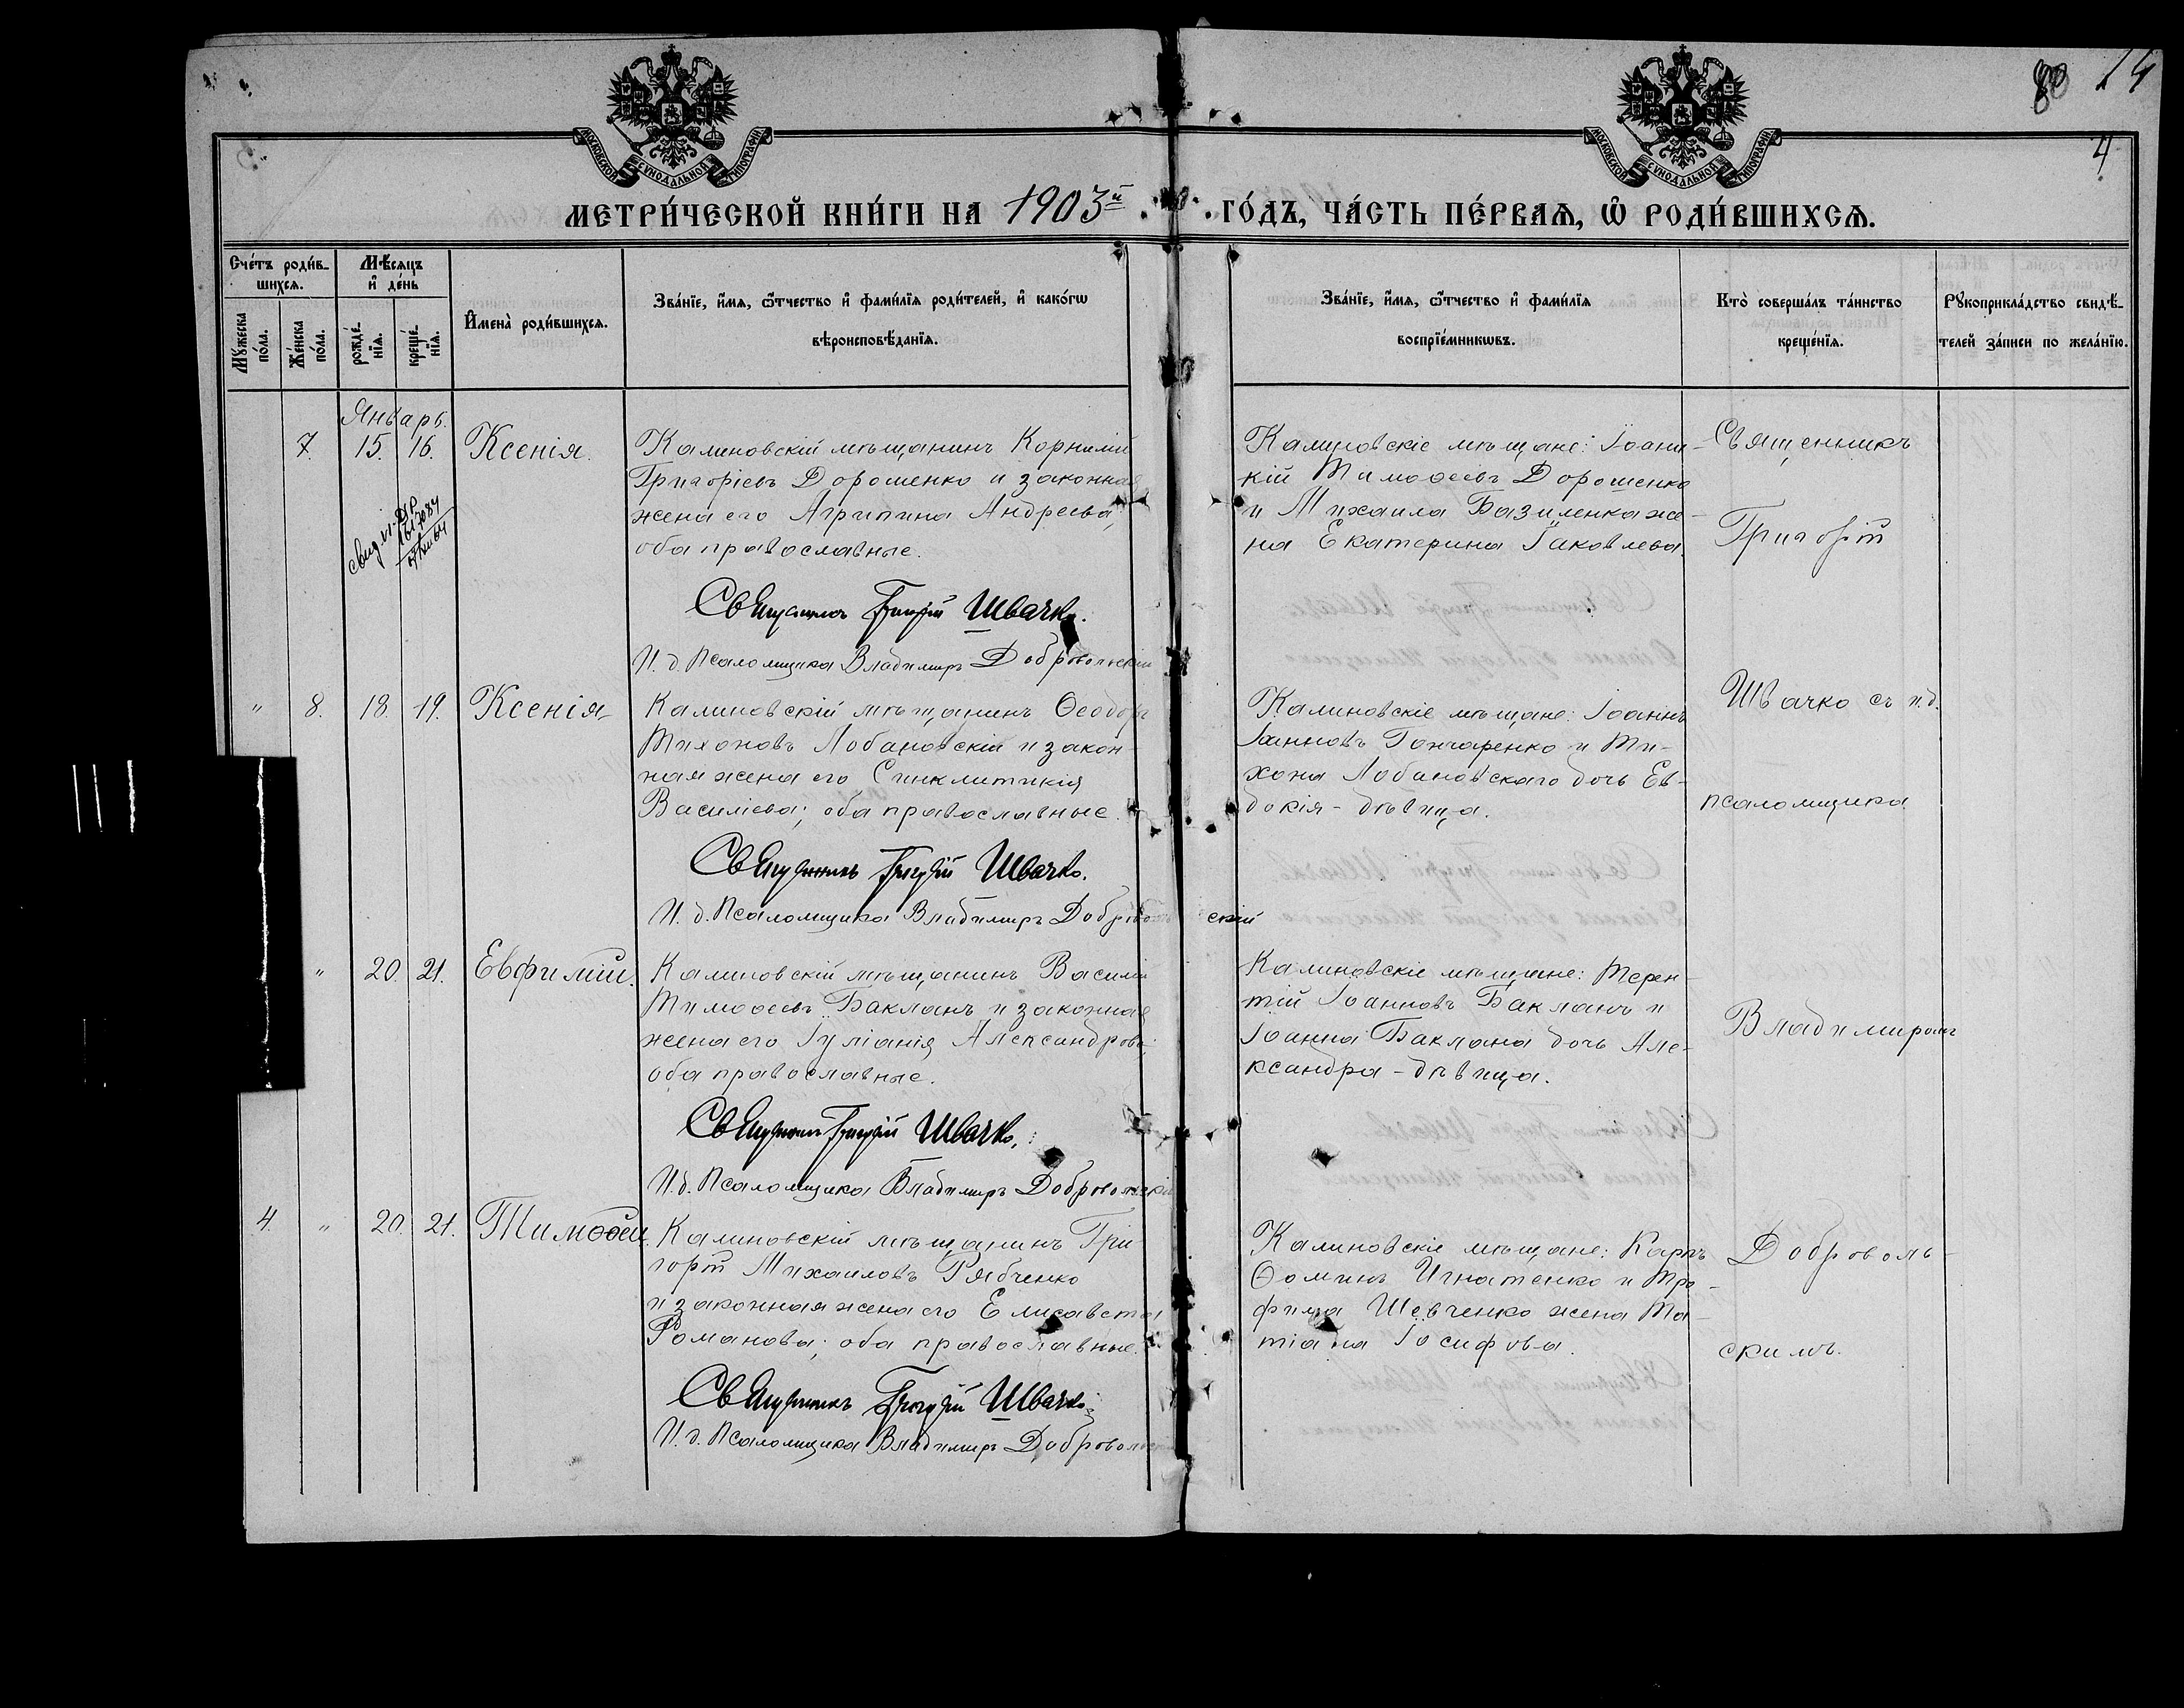 80 14
4
МОСКОВСКОЙ СѴНОДАЛЬНОЙ ТИПОГРАФІИ
МОСКОВСКОЙ СѴНОДАЛЬНОЙ ТИПОГРАФІИ
МЕТРИ́ЧЕСКОЙ КНИ́ГИ НА 1903й ГО́ДЪ, ЧА́СТЬ ПЕ́РВАѦ, Ѡ҆ РОДИ́ВШИХСѦ.
Сче́тъ роди́в-
шихсѧ.
Мꙋ́жеска по́ла.
Же́нска по́ла.
Мѣ́сѧцъ
и҆ де́нь
рожде́-нїѧ.
креще́-нїѧ.
И҆мена̀ роди́вшихсѧ.
Зва́нїе, и҆́мѧ, ѻ҆́тчество и҆ фами́лїѧ роди́телей, и҆ како́гѡ
вѣроисповѣ́данїѧ.
Зва́нїе, и҆́мѧ, ѻ҆́тчество и҆ фами́лїѧ
воспрїе́мникѡвъ.
Кто̀ соверша́лъ та́инство
креще́нїѧ.
Рꙋкоприкла́дство свидѣ́-
телей за́писи по жела́нїю.
Январь.
7. 15. 16. Ксенія.
Калиновскій мѣщанинъ Корнилій
Григоріевъ Дорошенко и законная
жена его Агрипина Андреева;
оба православные.
Священникъ Григорій Швачко.
И. д. Псаломщика Владимиръ Добровольскій
Калиновскіе мѣщане: Іоанни-
кій Тимоѳеевъ Дорошенко
и Михаила Базиленка же-
на Екатерина Іаковлева.
Священникъ
Григорій
" 8. 18. 19. Ксенія
Калиновскій мѣщанинъ Ѳеодоръ
Тихоновъ Лобановскій и закон-
ная жена его Синклитикія
Василіева; оба православные.
Священникъ Григорій Швачко.
И. д. Псаломщика Владимиръ Добровольскій
Калиновскіе мѣщане: Іоаннъ
Іоанновъ Гончаренко и Ти-
хона Лобановскаго дочь Ев-
докія - дѣвица.
Швачко съ и.д.
псаломщика
" 20. 21. Евфимій.
Калиновскій мѣщанинъ Василій
Тимоѳеевъ Бакланъ и законная
жена его Іуліанія Александрова;
оба православные.
Священникъ Григорій Швачко.
И. д. Псаломщика Владимиръ Добровольскій
Калиновскіе мѣщане: Терен-
тій Іоанновъ Бакланъ и
Іоанна Баклана дочь Але-
ксандра - дѣвица.
Владимиромъ
4. " 20. 21. Тимоѳей.
Калиновскій мѣщанинъ Гри-
горій Михаиловъ Рябченко
и законная жена его Елисавета
Романова; оба православные.
Священникъ Григорій Швачко
И. д. Псаломщика Владимиръ Добровольскій
Калиновскіе мѣщане: Карпъ
Ѳоминъ Игнатенко и Тро-
фима Шевченко жена Та-
тіана Іосифова.
Доброволь-
скимъ.